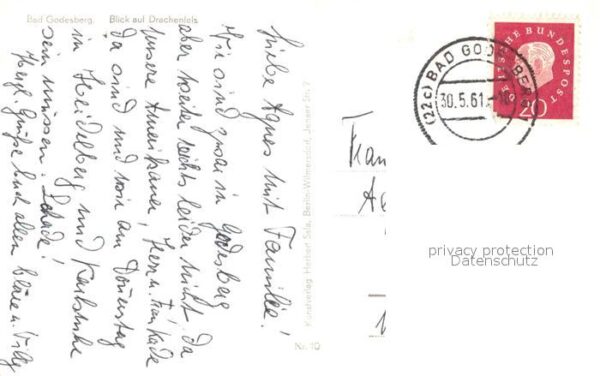 Bad Godesberg. Blick auf Drachenfels
Liebe Agnes mit Familie!
Wir sind zwar in Godesberg
aber weiter rechts leider nicht. da
unsere Amerikaner, Herr u. Frau
da sind und wir am Donnerstag
in Heidelberg und Karlsruhe
sein müssen. Schade!
Herzl. Grüße Euch allen u. Willy
Kunstverlag Herbert Berlin-Wilmersdorf, Jenaer Str.
Nr. 10
DEUTSCHE BUNDESPOST
20
(22c) BAD GODESBERG
30.5.61
Frau
privacy protection
Datenschutz